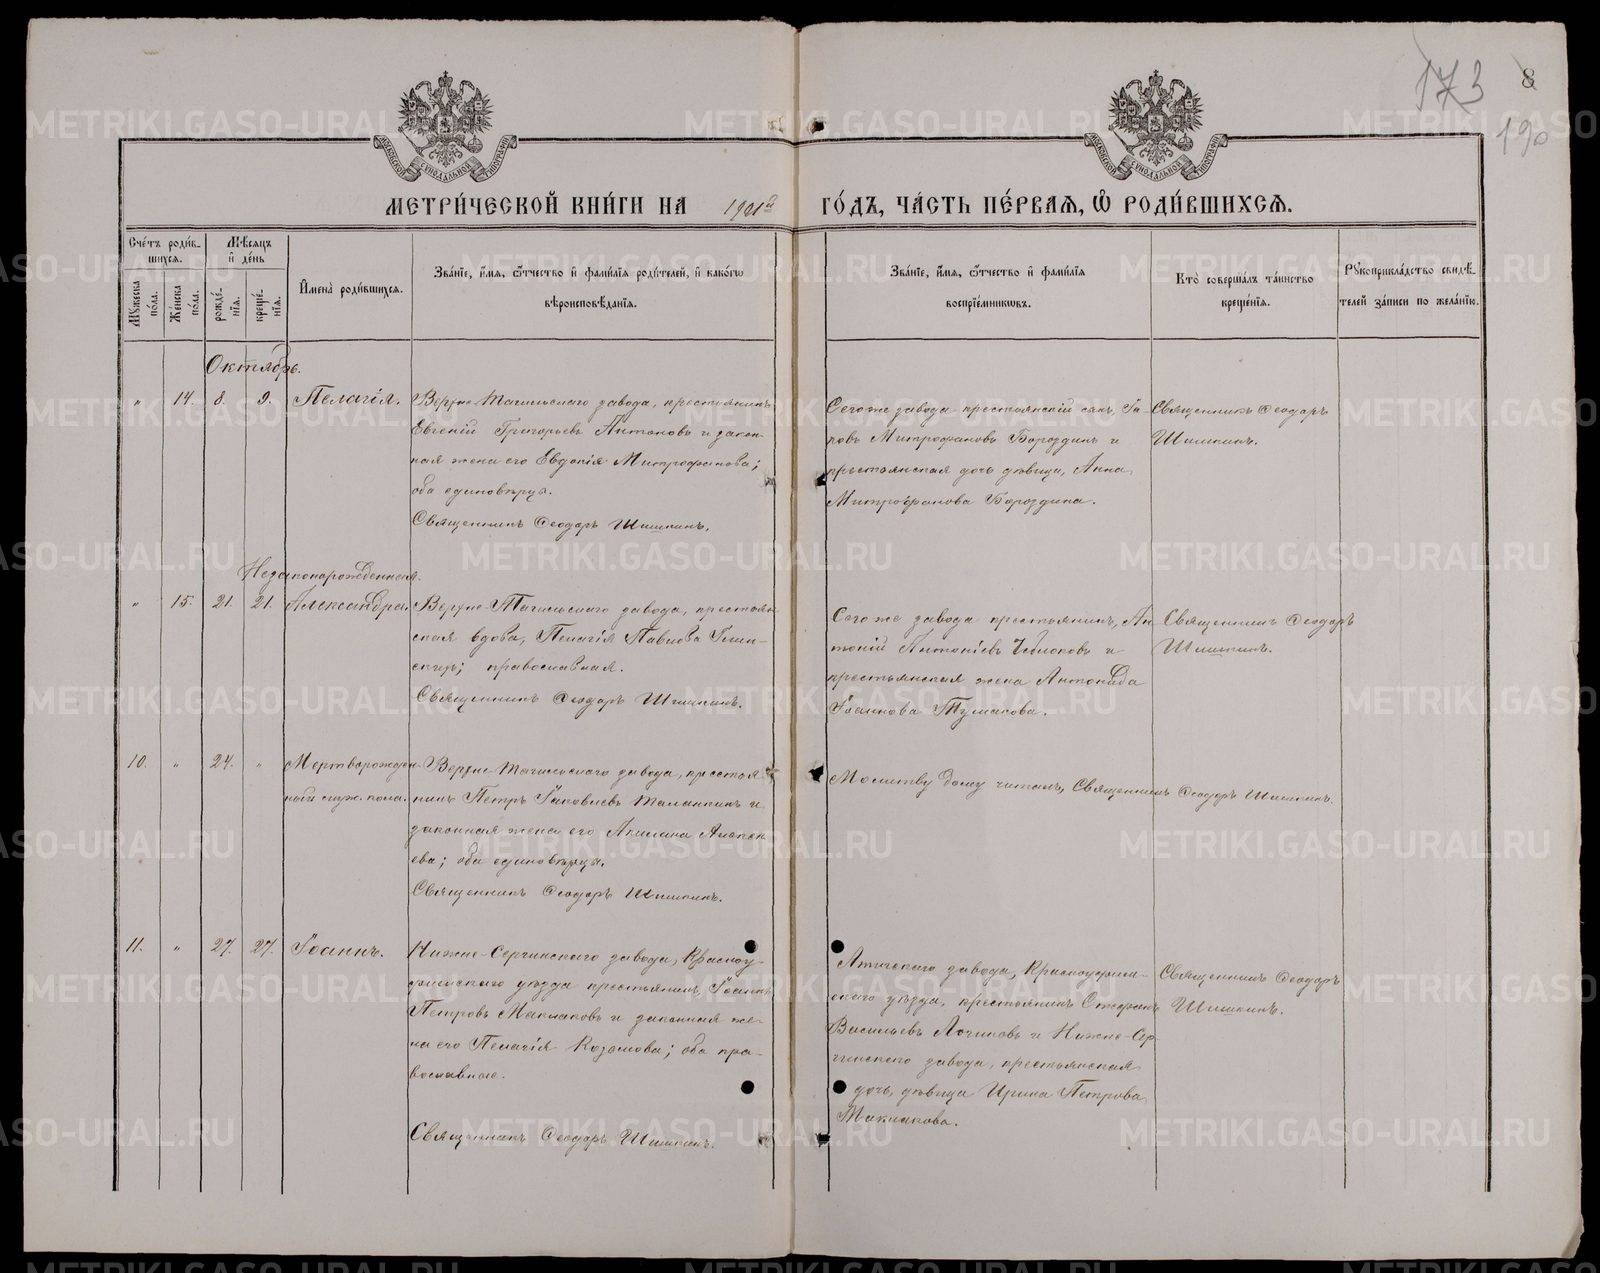 173
8
190
МОСКОВСКОЙ СѴНОДАЛЬНОЙ ТИПОГРАФІИ
МОСКОВСКОЙ СѴНОДАЛЬНОЙ ТИПОГРАФІИ
МЕТРИ́ЧЕСКОЙ КНИ́ГИ НА 1901й ГО́ДЪ, ЧА́СТЬ ПЕ́РВАЯ, Ѿ РОДИ́ВШИХСЯ.
Сче́тъ роди́в-
шихся.
Му́жеска по́ла.
Же́нска по́ла.
Мѣ́сяцъ
и де́нь
рожде́-
нія.
креще́-
нія.
Имена̀ роди́вшихся.
Зва́ніе, и́мя, ѻ́тчество и фами́лія роди́телей, и како́гѡ
вѣроисповѣ́данія.
Зва́ніе, и́мя, ѻ́тчество и фами́лія
воспріе́мниковъ.
Кто̀ соверша́лъ та́инство
креще́нія.
Рукоприкла́дство свидѣ́-
телей за́писи по жела́нію.
Октябрь.
" 14. 8. 9. Пелагія.
Верхне-Тагильскаго завода, крестьянинъ
Евгеній Григорьевъ Антоновъ и закон-
ная жена его Евдокія Митрофанова;
оба единовѣрцы.
Священникъ Ѳеодоръ Шишкинъ.
Сего же завода крестьянскій сынъ, Іа-
ковъ Митрофановъ Бороздинъ и
крестьянская дочь дѣвица, Анна
Митрофанова Бороздина.
Священникъ Ѳеодоръ
Шишкинъ.
Незаконорожденная.
" 15. 21. 21. Александра.
Верхне-Тагильскаго завода, крестьян-
ская вдова, Пелагія Павлова
православная.
Священникъ Ѳеодоръ Шишкинъ.
Сего же завода крестьянинъ, Ан-
тоній Антоніевъ и
крестьянская жена Антонида
Іоаннова Тумакова.
Священникъ Ѳеодоръ
Шишкинъ.
10. " 24. " Мертворожден-
ный муж. пола.
Верхне-Тагильскаго завода, крестья-
нинъ Петръ Іаковлевъ Таланкинъ и
законная жена его Акилина Алексѣ-
ева; оба единовѣрцы.
Священникъ Ѳеодоръ Шишкинъ.
Молитву дому читалъ, Священникъ Ѳеодоръ Шишкинъ.
11. " 27. 27. Іоаннъ.
Нижне-Сергинскаго завода, Красноу-
фимскаго уѣзда крестьянинъ, Іоаннъ
Петровъ Маклаковъ и законная же-
на его Пелагія Козьмова; оба пра-
вославные.
Священникъ Ѳеодоръ Шишкинъ.
Атигскаго завода, Красноуфим-
скаго уѣзда, крестьянинъ Стефанъ
Васильевъ и Нижне-Сер-
гинскаго завода, крестьянская
дочь, дѣвица Ирина Петрова
Маклакова.
Священникъ Ѳеодоръ
Шишкинъ.
METRIKI.GASO-URAL.RU